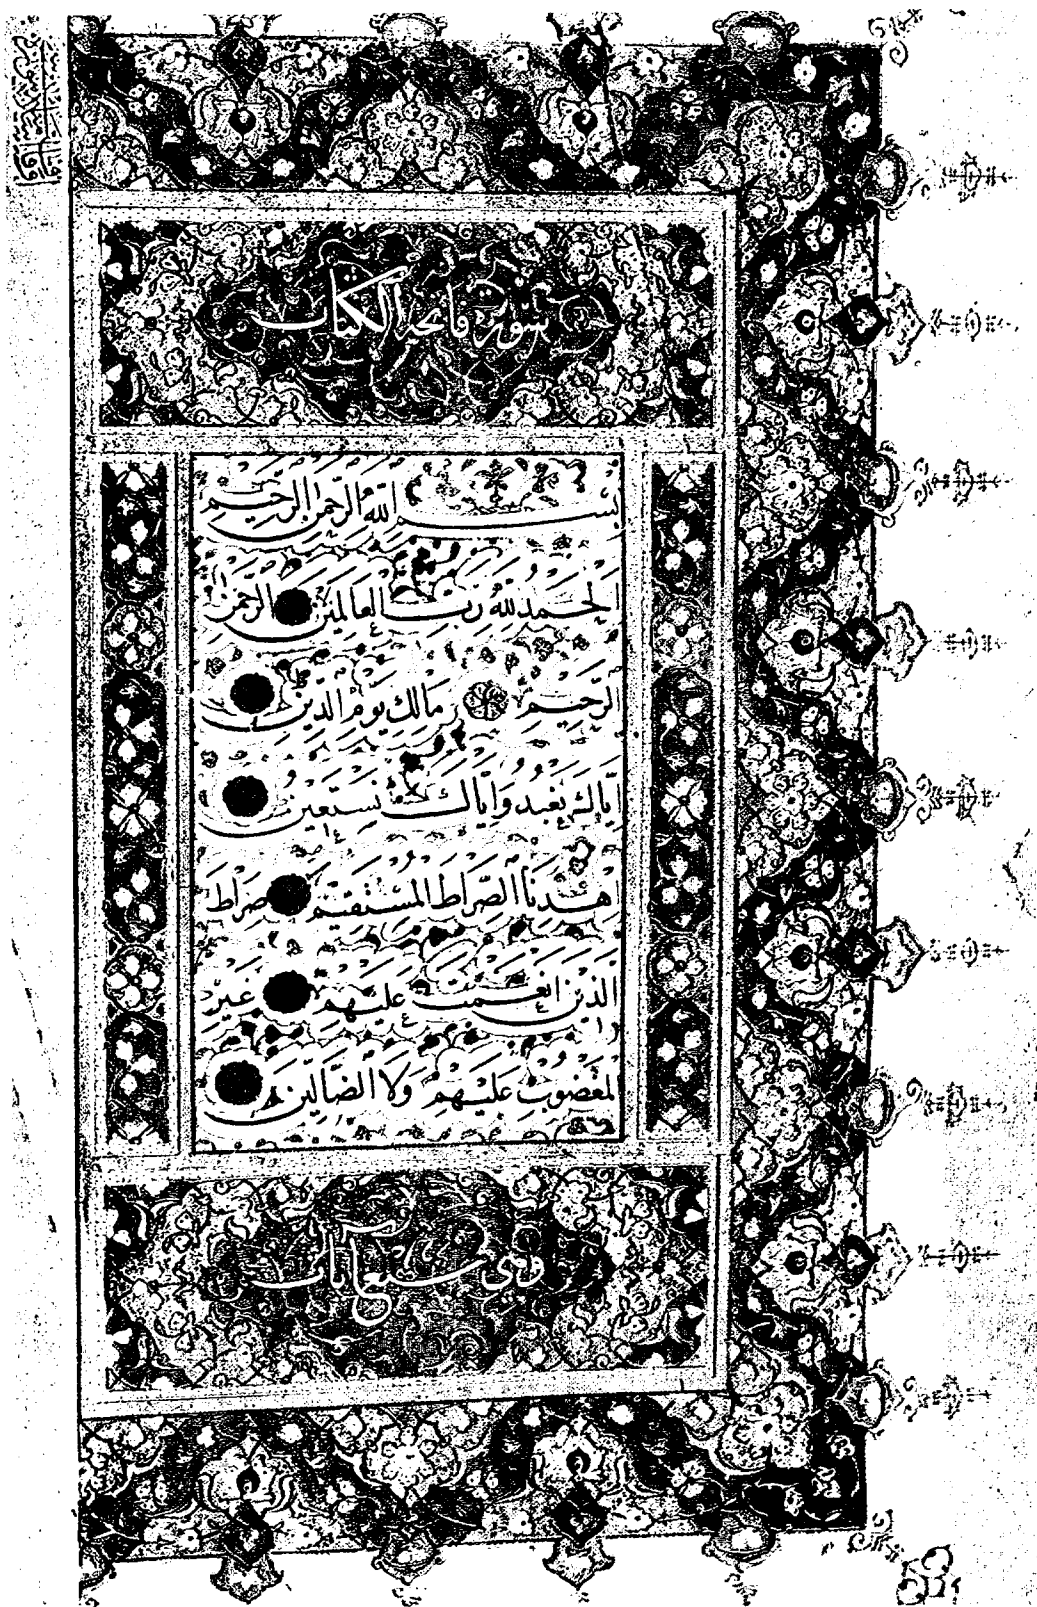 سورة فاتحة الكتاب
بسم الله الرحمن الرحيم
الحمد لله رب العالمين الرحمن
الرحيم مالك يوم الدين
اياك نعبد واياك نستعين
اهدنا الصراط المستقيم صراط
الذين انعمت عليهم غير
المغضوب عليهم ولا الضالين
وهي سبع ايات